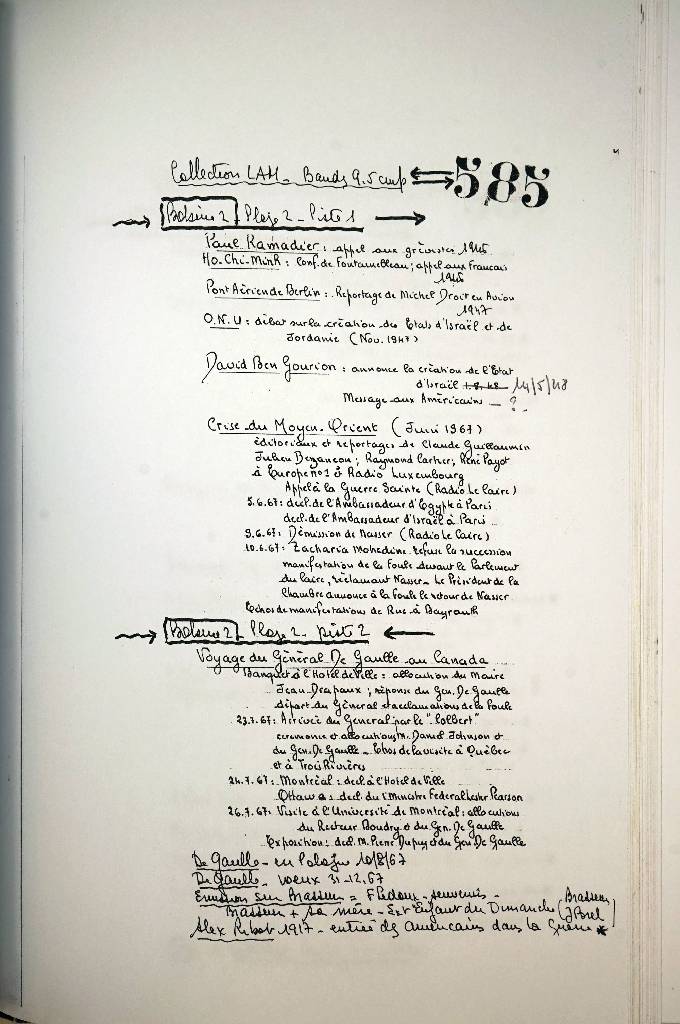 Collection LAH - Bande 9.5 cmp 585
Bobine 2 Plage 2 - Piste 1
Paul Ramadier : appel aux grévistes 1946
Ho-Chi-Minh : Conf. de Fontainebleau ; appel aux Francais
1946
Pont Aérien de Berlin : Reportage de Michel Droit en Avion
1947
O.N.U : débat sur la création des Etats d'Israël et de
Jordanie (Nov. 1947)
David Ben Gourion : annonce la création de l'Etat
d'Israël 1.8.48 14/5/48
Message aux Américains - ?
Crise du Moyen-Orient (Juin 1967)
éditoriaux et reportages de Claude Guillaumin
Julien Besançon ; Raymond Cartier ; René Payot
à Europe no1 & Radio Luxembourg
Appel à la Guerre Sainte (Radio Le Caire)
5.6.67 : decl. de l'Ambassadeur d'Egypte à Paris
decl. de l'Ambassadeur d'Israël à Paris
9.6.67 : Démission de Nasser (Radio Le Caire)
10.6.67 : Zacharia Mohedine refuse la succession
manifestation de la Foule devant le Parlement
du Caire, réclamant Nasser - Le Président de la
Chambre annonce à la Foule le retour de Nasser
Echos de manifestations de Rue à Beyrouth
Bobine 2 - Plage 2 - piste 2
Voyage du Général De Gaulle au Canada
Banquet à l'Hotel de Ville : allocution du Maire
Jean Drapaux ; réponse du Gen. De Gaulle
départ du Général et acclamations de la Foule
23.7.67 : Arrivée du General par le "Colbert"
ceremonie et allocutions M. Daniel Johnson et
du Gen. De Gaulle - Echos de la visite à Québec
et à Trois Rivières
24.7.67 : Montréal : decl à l'Hotel de Ville
Ottawa : decl. du 1° Ministre Federal Lester Pearson
26.7.67 : Visite à l'Université de Montréal : allocutions
du Recteur Gaudry & du Gen. De Gaulle
Exposition : decl. M. Pierre Dupuy et du Gen. De Gaulle
De Gaulle - en Pologne 10/8/67
De Gaulle - voeux 31-12.67
Emission sur Brasseur = Fledoux - souvenirs - Brasseur
Brasseur + sa mère - Ext "Enfant du Dimanche (
Alex Ribot 1917 - entrée des américains dans la Guerre *